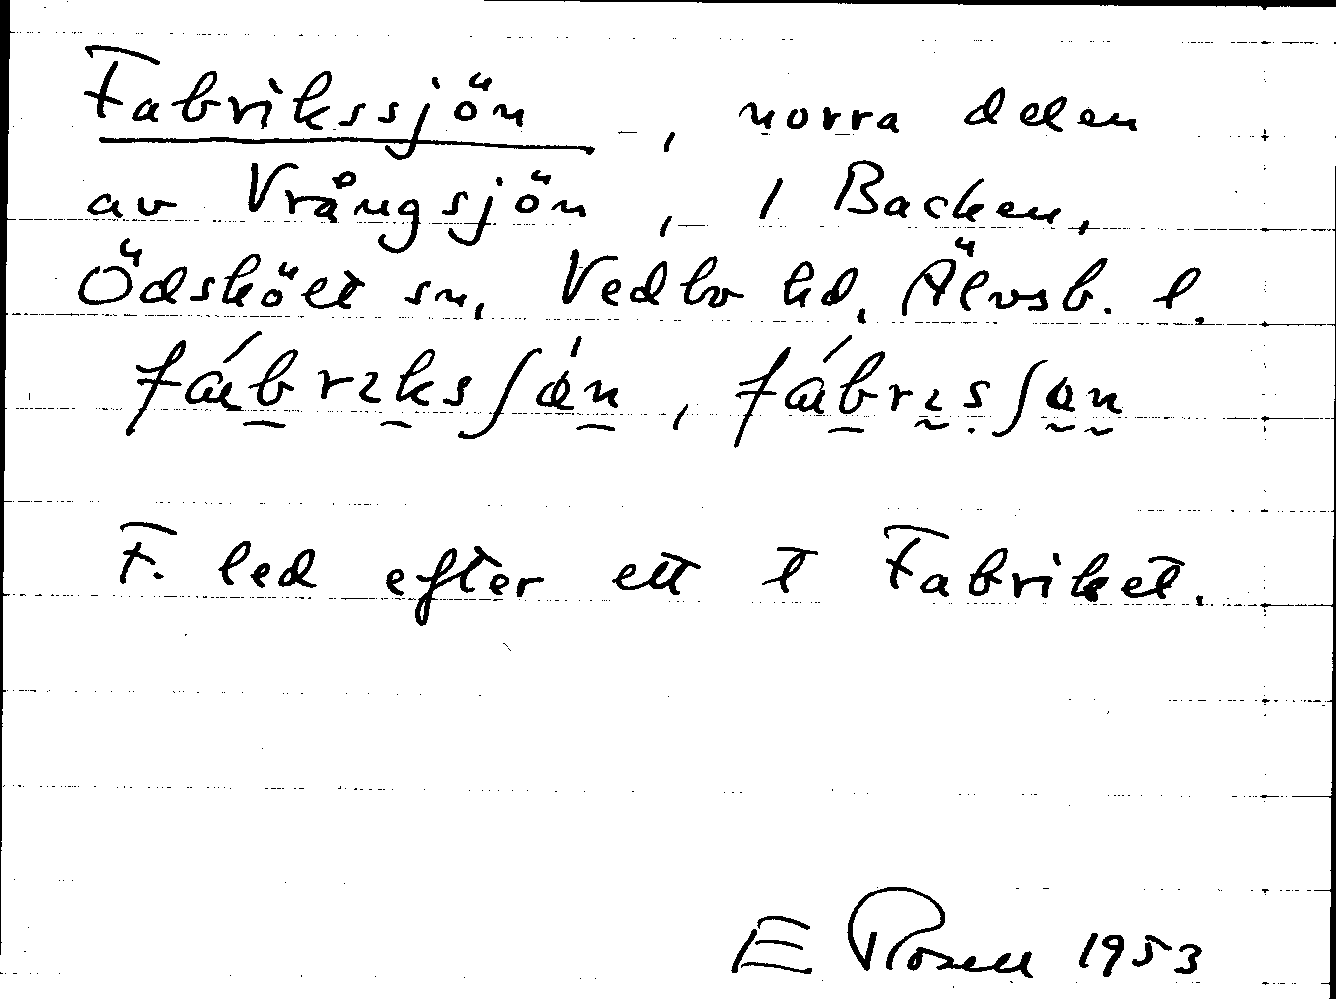 Fabrikssjön, norra delen
av Vrångsjön, i Backen,
Ödskölt sn, Vedbo hd, Älvsb. l.
fábrɪksʃɵ̀n, fábrɪsʃɵn
F. led efter ett t Fabriket.
E Rosell 1953